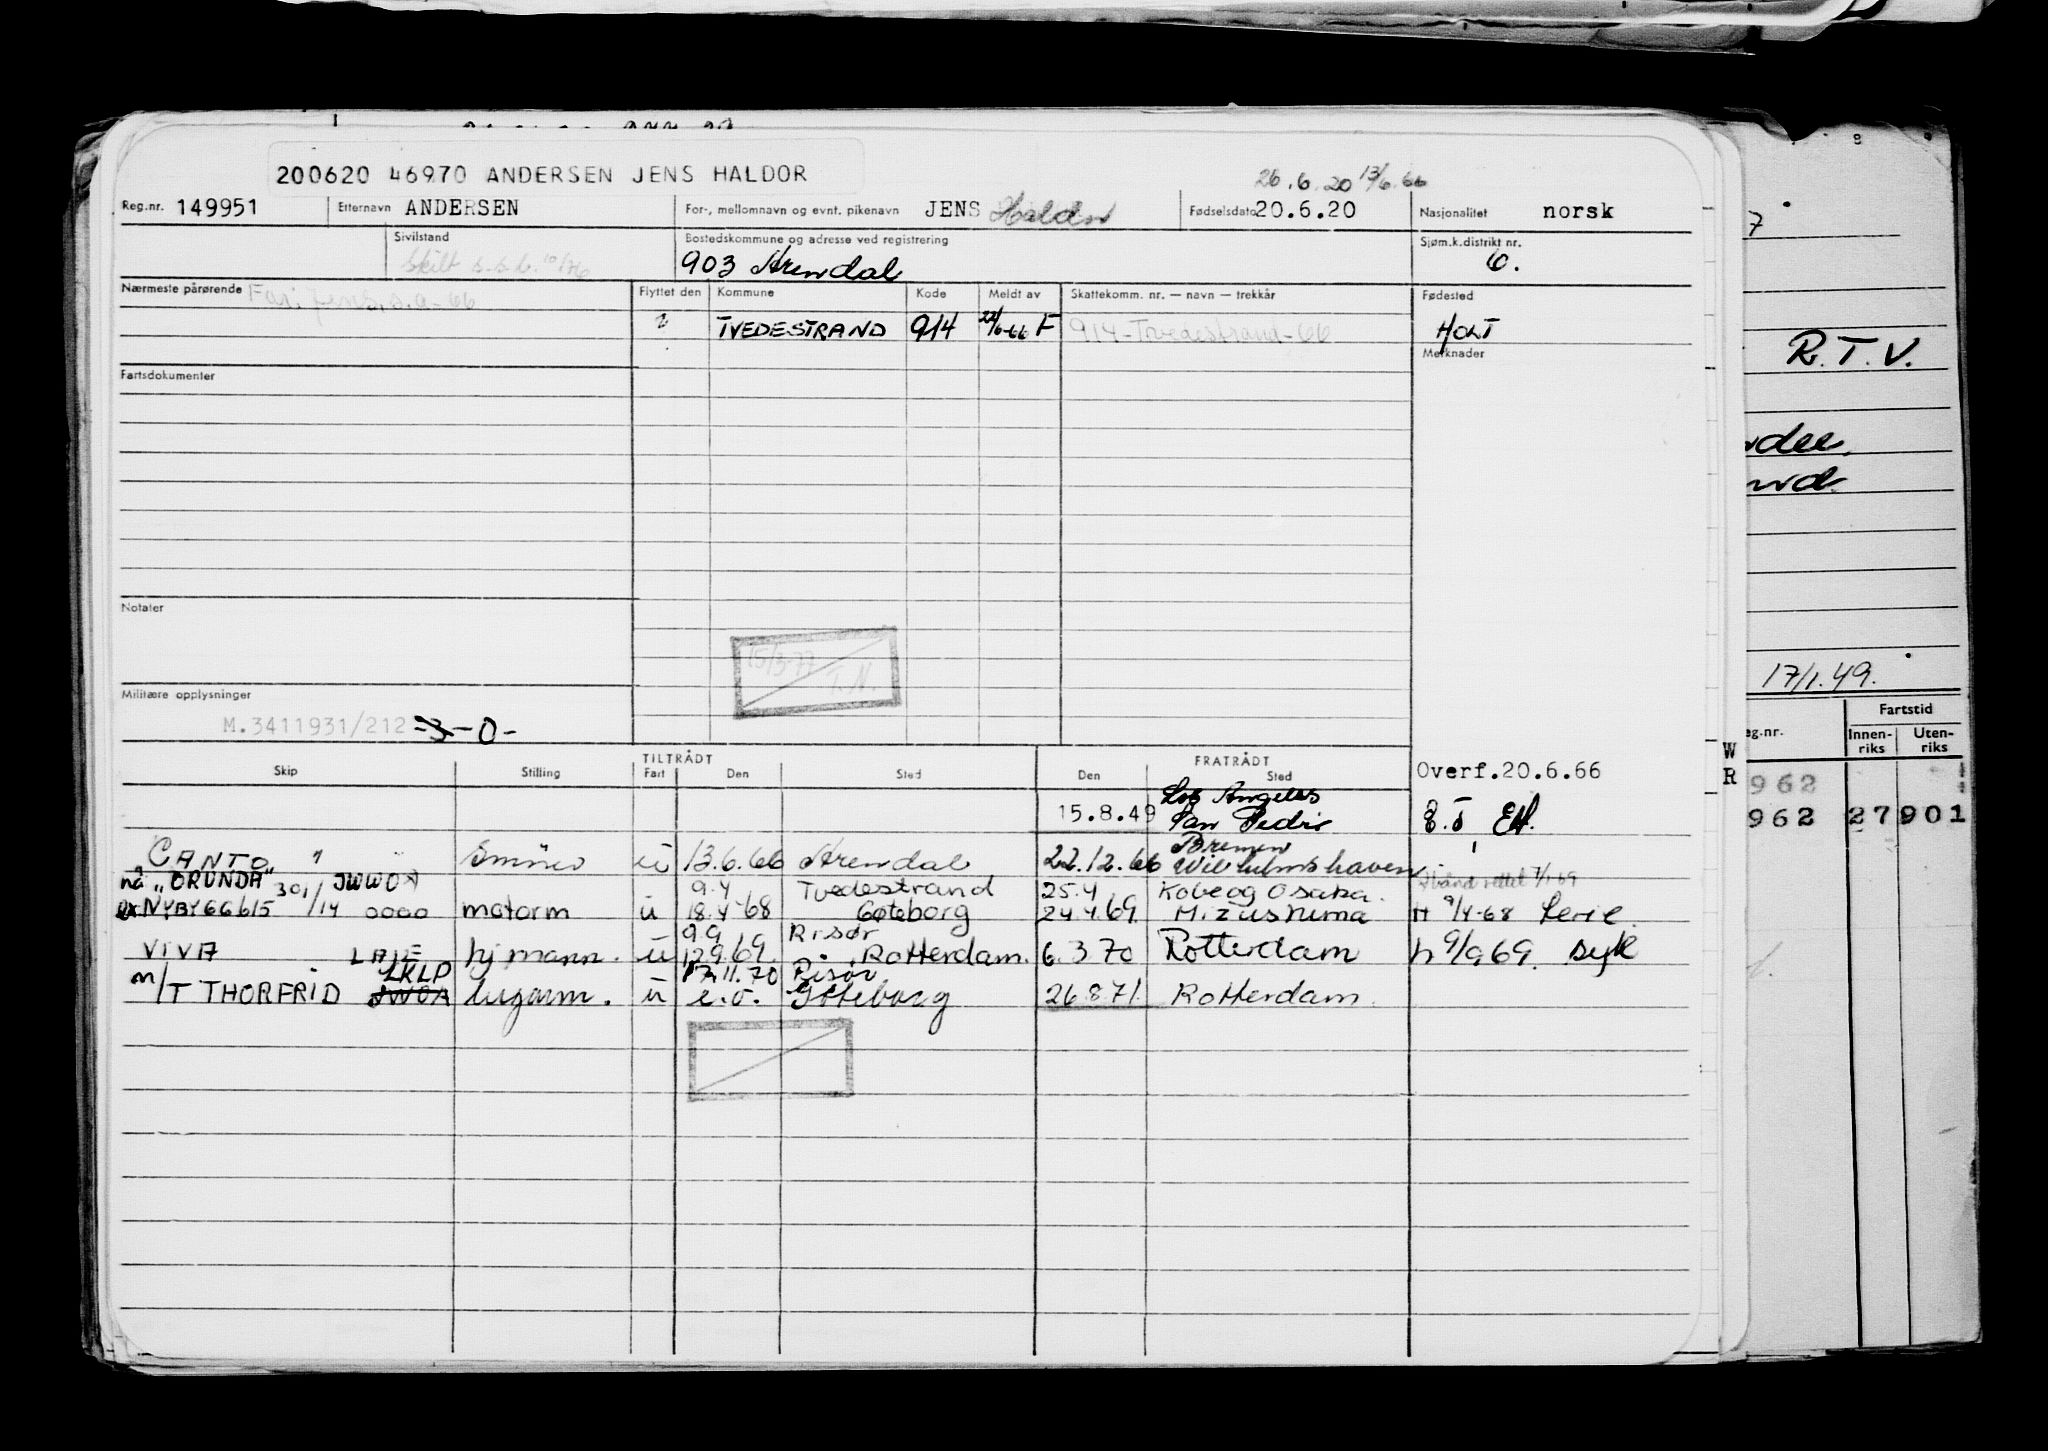 200620 46970 ANDERSEN JENS HALDOR
26.6.20 13/6.66
Reg.nr. 149951 Etternavn ANDERSEN For-, mellomnavn og evnt. pikenavn JENS Haldor Fødselsdato 20.6.20 Nasjonalitet norsk
Sivilstand Skilt s.s.b. 10/76 Bostedskommune og adresse ved registrering 903 Arendal Sjøm.k.distrikt nr. 6.
Nærmeste pårørende Far: Jens, s.a-66 Flyttet den Kommune Kode Meldt av Skattekomm. nr. — navn — trekkår Fødested
? TVEDESTRAND 914 22/6-66 F 914-Tvedestrand-66 HOLT
Merknader
Fartsdokumenter
Notater
15/3-77 T.N.
Militære opplysninger
M.3411931/212 -3-0-
TILTRÅDT FRATRÅDT
Skip Stilling Fart Den Sted Den Sted Overf.20.6.66
15.8.49 Los Angeles San Pedro
CANTO Smörer u 13.6.66 Arendal 22.12.66 Bremen Wilhelmshaven
nå "ORUNDA" 30,/14 JWWO
ex NYBY66615 oooo motorm u 9.4 18.4-68 Tvedestrand Gøteborg 25.4 24.4.69. Kobe og Osaka. Mizushima H 9/4-68 Ferie.
VIVA hj mann. u 9.9 12.9.69. Risør Rotterdam. 6.3.70 Rotterdam h 9/9 69. syk
m/T THORFRID LKLP JWOA lugarm. u 17.11.70 e.o. Risør Göteborg 26.8.71. Rotterdam.
7
R.T.V.
17/1.49.
eg.nr. Fartstid
Innen-riks Uten-riks
W
R
962
962 27 901